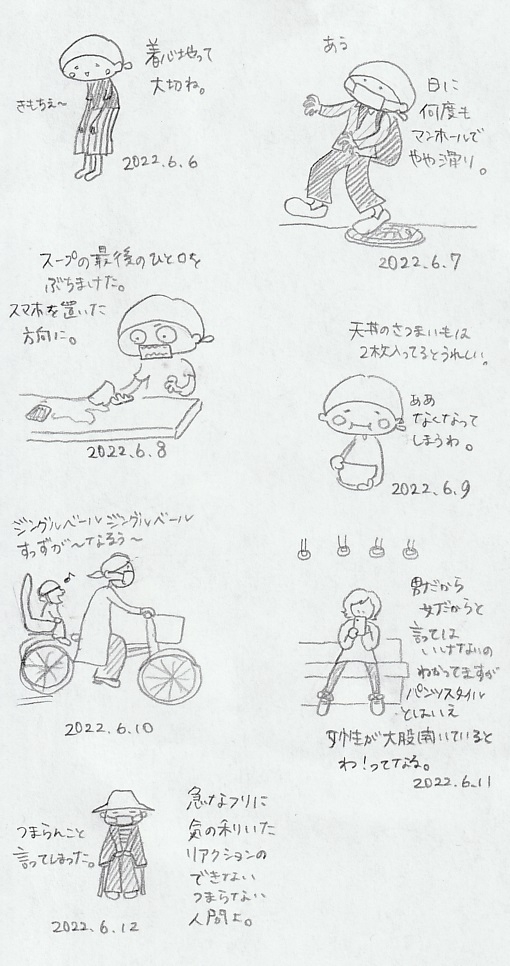 着心地って
大切ね。
きもちえ〜
2022.6.6
あぅ
日に
何度も
マンホールで
やや滑り。
2022.6.7
スープの最後のひと口を
ぶちまけた。
スマホを置いた
方向に。
2022.6.8
天丼のさつまいもは
2枚入ってるとうれしい。
ああ
なくなって
しまうわ。
2022.6.9
ジングルベール ジングルベール
すっずが〜なるぅ〜
2022.6.10
男だから
女だからと
言っては
いけないの
わかってますが
パンツスタイル
とはいえ
女性が大股開いていると
わ!ってなる。
2022.6.11
つまらんこと
言ってしまった。
2022.6.12
急なフリに
気の利いた
リアクションの
できない
つまらない
人間よ。